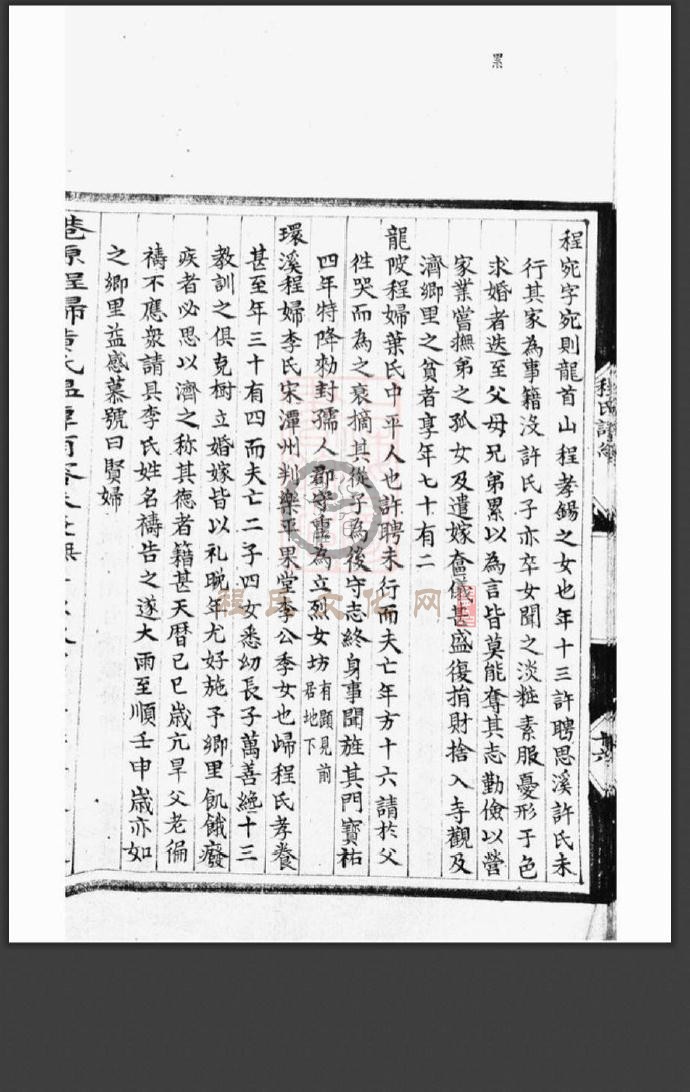 累
程宛字宛則龍首山程孝錫之女也年十三許聘思溪許氏未
行其家為事籍没許氏子亦卒女聞之淡粧素服憂形于色
求婚者迭至父母兄弟累以為言皆莫能奪其志勤儉以營
家業嘗撫弟之孤女及遣嫁奩儀甚盛復捐財捨入寺觀及
濟鄉里之貧者享年七十有二
龍陂程婦葉氏中平人也許聘未行而夫亡年方十六請於父
徃哭而為之衰摘其從子為後守志終身事聞旌其門寳祐
四年特降勑封孺人郡守重為立烈女坊有顕見前居地下
環溪程婦李氏宋潭州判樂平果堂李公季女也歸程氏孝養
甚至年三十有四而夫亡二子四女悉幼長子萬善絶十三
教訓之俱克樹立婚嫁皆以礼晚年尤好施予鄉里飢餓癈
疾者必思以濟之称其德者籍甚天暦己巳嵗亢旱父老徧
禱不應衆請具李氏姓名禱告之遂大雨至順壬申嵗亦如
之鄉里益感慕號曰賢婦
程氏譜
程氏文化网